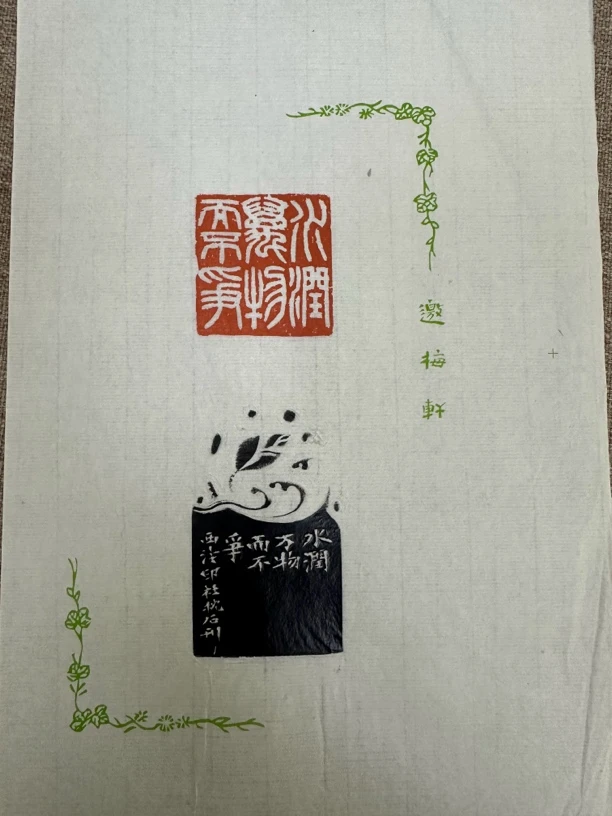 水潤
萬物
而不爭
邀梅軒
水潤
万物
而不
爭
西泠印社枕石刊